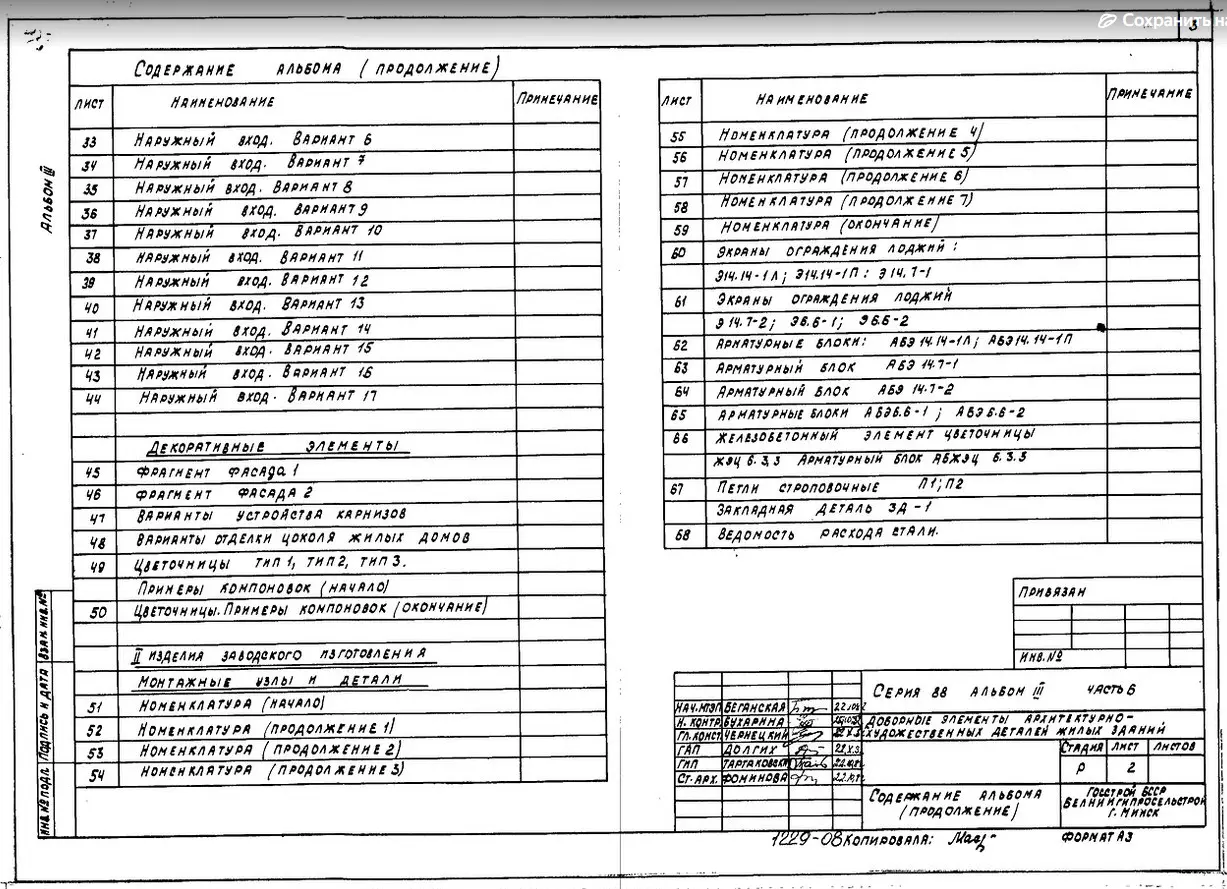 Сохранить на
3
Содержание альбома (продолжение)
Альбом III
Лист Наименование Примечание
33 Наружный вход. Вариант 6
34 Наружный вход. Вариант 7
35 Наружный вход. Вариант 8
36 Наружный вход. Вариант 9
37 Наружный вход. Вариант 10
38 Наружный вход. Вариант 11
39 Наружный вход. Вариант 12
40 Наружный вход. Вариант 13
41 Наружный вход. Вариант 14
42 Наружный вход. Вариант 15
43 Наружный вход. Вариант 16
44 Наружный вход. Вариант 17
Декоративные элементы
45 Фрагмент фасада 1
46 Фрагмент фасада 2
47 Варианты устройства карнизов
48 Варианты отделки цоколя жилых домов
49 Цветочницы тип 1, тип 2, тип 3.
Примеры компоновок (начало)
50 Цветочницы. Примеры компоновок (окончание)
II изделия заводского изготовления
Монтажные узлы и детали
51 Номенклатура (начало)
52 Номенклатура (продолжение 1)
53 Номенклатура (продолжение 2)
54 Номенклатура (продолжение 3)
Лист Наименование Примечание
55 Номенклатура (продолжение 4)
56 Номенклатура (продолжение 5)
57 Номенклатура (продолжение 6)
58 Номенклатура (продолжение 7)
59 Номенклатура (окончание)
60 Экраны ограждения лоджий:
Э14.14-1Л; Э14.14-1П; Э14.7-1
61 Экраны ограждения лоджий
Э14.7-2; Э6.6-1; Э6.6-2
62 Арматурные блоки: АБЭ14.14-1Л; АБЭ14.14-1П
63 Арматурный блок АБЭ 14.7-1
64 Арматурный блок АБЭ 14.7-2
65 Арматурные блоки АБЭ6.6-1; АБЭ6.6-2
66 Железобетонный элемент цветочницы
ЖЭЦ 6.3.3 Арматурный блок АБЖЭЦ 6.3.3
67 Петли строповочные П1; П2
Закладная деталь ЗД-1
68 Ведомость расхода стали.
Привязан
Инв.№
Взам. инв. №
Подпись и дата
Инв.№ подл.
Серия 88 альбом III часть 6
Нач. МТЭП Беганская
Н. контр. Бухарина
Гл. конст. Чернецкий
ГАП Долгих
ГИП Тартаковск
Ст. арх. Фоминова
Доборные элементы архитектурно-
художественных деталей жилых зданий
Стадия Лист Листов
Р 2
Содержание альбома
(продолжение)
Госстрой БССР
Белниигипросельстрой
г. Минск
1229-08 Копировала:
Формат А3